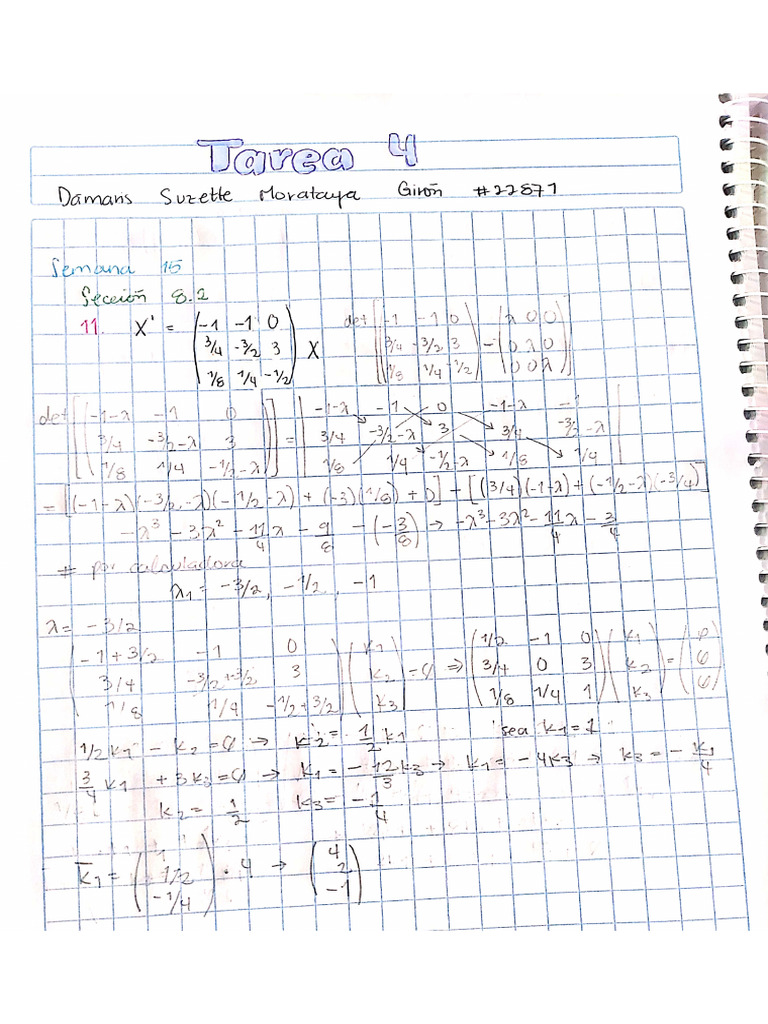 Tarea 4
Damaris Suzette Morataya Girón #22871
Semana 15
Sección 8.2
11. X' = (-1 -1 0 / 3/4 -3/2 3 / 1/8 1/4 -1/2) X det[(-1 -1 0 / 3/4 -3/2 3 / 1/8 1/4 -1/2) - (λ 0 0 / 0 λ 0 / 0 0 λ)]
det[(-1-λ -1 0 / 3/4 -3/2-λ 3 / 1/8 1/4 -1/2-λ)] = |-1-λ -1 0 -1-λ -1 / 3/4 -3/2-λ 3 3/4 -3/2-λ / 1/8 1/4 -1/2-λ 1/8 1/4|
= [(-1-λ)(-3/2-λ)(-1/2-λ) + (-3)(1/8) + 0] - [(3/4)(-1-λ) + (-1/2-λ)(-3/4)]
-λ³ - 3λ² - 11/4 λ - 9/8 - (-3/8) → -λ³ - 3λ² - 11/4 λ - 3/4
# por calculadora
λ1 = -3/2, -1/2, -1
λ = -3/2
(-1+3/2 -1 0 / 3/4 -3/2+3/2 3 / 1/8 1/4 -1/2+3/2)(k1 / k2 / k3) = 0 ⇒ (1/2 -1 0 / 3/4 0 3 / 1/8 1/4 1)(k1 / k2 / k3) = (0 / 0 / 0)
1/2 k1 - k2 = 0 → k2 = 1/2 k1 sea k1 = 1
3/4 k1 + 3k3 = 0 → k1 = -12/3 k3 → k1 = -4k3 → k3 = -k1/4
k2 = 1/2 k3 = -1/4
k1 = (1 / 1/2 / -1/4) · 4 → (4 / 2 / -1)